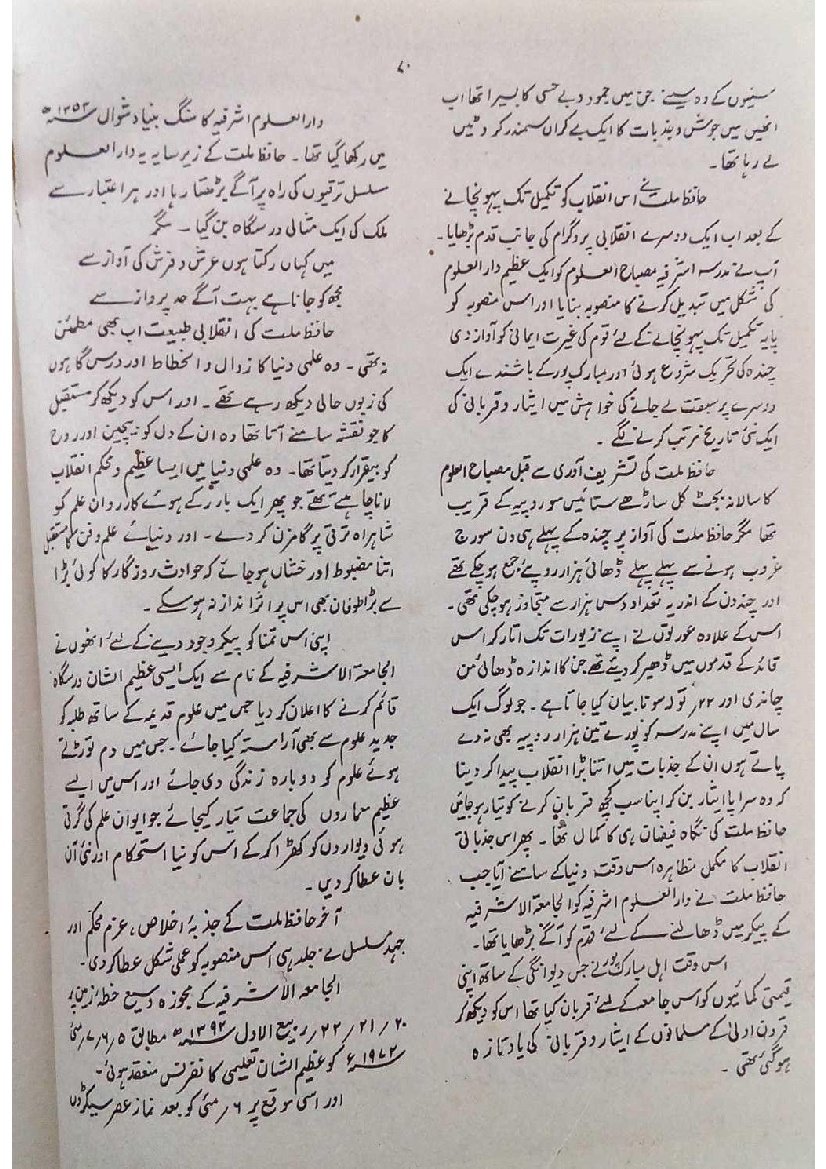 ۷۰
سینوں کے وہ سینے جن میں جمود و بے حسی کا بسیرا تھا اب
انھیں میں جوش و جذبات کا ایک بے کراں سمندر کروٹیں
لے رہا تھا۔
حافظ ملت نے اس انقلاب کو تکمیل تک پہونچانے
کے بعد اب ایک دوسرے انقلابی پروگرام کی جانب قدم بڑھایا۔
آپ نے مدرسہ اشرفیہ مصباح العلوم کو ایک عظیم دارالعلوم
کی شکل میں تبدیل کرنے کا منصوبہ بنایا اور اس منصوبہ کو
پایہ تکمیل تک پہونچانے کے لئے قوم کی غیرت ایمانی کو آواز دی
چندہ کی تحریک شروع ہوئی اور مبارک پور کے باشندے ایک
دوسرے پر سبقت لے جانے کی خواہش میں ایثار و قربانی کی
ایک نئی تاریخ مرتب کرنے لگے۔
حافظ ملت کی تشریف آوری سے قبل مصباح العلوم
کا سالانہ بجٹ کل ساڑھے ستائیس سو روپیہ کے قریب
تھا مگر حافظ ملت کی آواز پر چندہ کے پہلے ہی دن سورج
غروب ہونے سے پہلے پہلے ڈھائی ہزار روپئے جمع ہو چکے تھے
اور چند دن کے اندر یہ تعداد دس ہزار سے متجاوز ہو چکی تھی۔
اس کے علاوہ عورتوں نے اپنے زیورات تک اتار کر اس
قائد کے قدموں میں ڈھیر کر دیئے تھے جن کا اندازہ ڈھائی من
چاندی اور ۲۲؍ تولہ سونا بیان کیا جاتا ہے۔ جو لوگ ایک
سال میں اپنے مدرسہ کو پورے تین ہزار روپیہ بھی نہ دے
پاتے ہوں ان کے جذبات میں اتنا بڑا انقلاب پیدا کر دینا
کہ وہ سراپا ایثار بن کر اپنا سب کچھ قربان کرنے کو تیار ہو جائیں
حافظ ملت کی نگاہ فیضان ہی کا کمال تھا۔ پھر اس جذباتی
انقلاب کا مکمل مظاہرہ اس وقت دنیا کے سامنے آیا جب
حافظ ملت نے دارالعلوم اشرفیہ کو الجامعۃ الاشرفیہ
کے پیکر میں ڈھالنے کے لئے قدم کو آگے بڑھایا تھا۔
اس وقت اہل مبارک پور نے جس دیوانگی کے ساتھ اپنی
قیمتی کمائیوں کو اس جامعہ کے لئے قربان کیا تھا اس کو دیکھ کر
قرون اولیٰ کے مسلمانوں کے ایثار و قربانی کی یاد تازہ
ہو گئی تھی۔
دارالعلوم اشرفیہ کا سنگ بنیاد شوال ۱۳۵۳ھ
میں رکھا گیا تھا۔ حافظ ملت کے زیر سایہ یہ دارالعلوم
مسلسل ترقیوں کی راہ پر آگے بڑھتا رہا اور ہر اعتبار سے
ملک کی ایک مثالی درسگاہ بن گیا۔ مگر
میں کہاں رکتا ہوں عرش و فرش کی آواز سے
مجھ کو جانا ہے بہت آگے حد پرواز سے
حافظ ملت کی انقلابی طبیعت اب بھی مطمئن
نہ تھی۔ وہ علمی دنیا کا زوال و انحطاط اور درس گاہوں
کی زبوں حالی دیکھ رہے تھے۔ اور اس کو دیکھ کر مستقبل
کا جو نقشہ سامنے آتا تھا وہ ان کے دل کو بے چین اور روح
کو بیقرار کر دیتا تھا۔ وہ علمی دنیا میں ایسا عظیم و محکم انقلاب
لانا چاہتے تھے جو پھر ایک بار رکے ہوئے کارروان علم کو
شاہراہ ترقی پر گامزن کر دے۔ اور دنیائے علم و فن کا مستقبل
اتنا مضبوط اور خشاں ہو جائے کہ حوادث روزگار کا کوئی بڑا
سے بڑا طوفان بھی اس پر اثر انداز نہ ہو سکے۔
اپنی اس تمنا کو پیکر وجود دینے کے لئے انھوں نے
الجامعۃ الاشرفیہ کے نام سے ایک ایسی عظیم الشان درسگاہ
قائم کرنے کا اعلان کر دیا جس میں علوم قدیمہ کے ساتھ طلبہ کو
جدید علوم سے بھی آراستہ کیا جائے۔ جس میں دم توڑتے
ہوئے علوم کو دوبارہ زندگی دی جائے اور اس میں ایسے
عظیم معماروں کی جماعت تیار کیجائے جو ایوان علم کی گرتی
ہوئی دیواروں کو کھڑا کر کے اس کو نیا استحکام اور نئی آن
بان عطا کر دیں۔
آخر حافظ ملت کے جذبۂ اخلاص، عزم محکم اور
جہد مسلسل نے جلد ہی اس منصوبہ کو عملی شکل عطا کر دی۔
الجامعۃ الاشرفیہ کے مجوزہ وسیع خطۂ زمین پر
۲۰؍۲۱؍۲۲؍ ربیع الاول ۱۳۹۲ھ مطابق ۵؍۶؍۷؍ مئی
۱۹۷۲ء کو عظیم الشان تعلیمی کانفرنس منعقد ہوئی۔
اور اسی موقع پر ۶؍ مئی کو بعد نماز عصر سیکڑوں